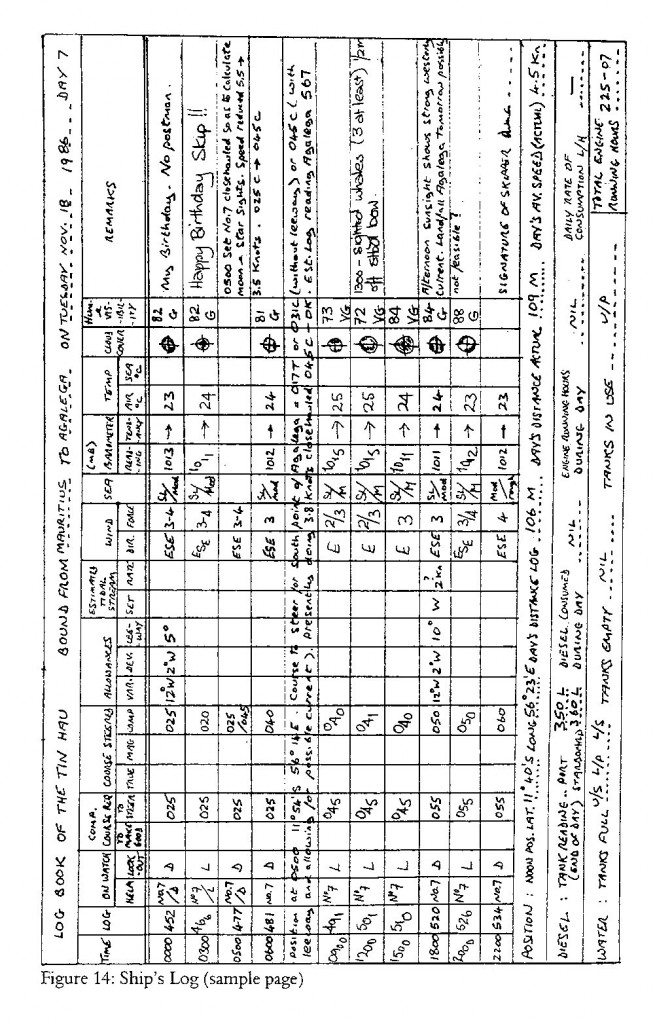 LOG BOOK OF THE TIN HAU BOUND FROM MAURITIUS TO AGALEGA. ON TUESDAY NOV. 18 1986 DAY 7
TIME LOG ON WATCH COMP. COURSE REQ COURSE STEERED ALLOWANCES ESTIMATED TIDAL STREAM WIND SEA BAROMETER (MB) TEMP CLOUD COVER HUM. & VISIBIL-ITY REMARKS
HELM LOOK-OUT TO MAKE GOOD TO STEER TRUE MAG COMP VAR. DEV. LEE-WAY SET RATE DIR. FORCE READ-ING TEND-ANCY AIR °C SEA °C
0000 452 No.7/D D 025 025 12°W 2°W 5° ESE 3-4 Sl/mod 1013 → 23 82 G My Birthday. No postman.
0300 466 Nº7/L L 025 020 ESE 3-4 Sl/Mod 1011 → 24 82 G Happy Birthday Skip !!
0500 477 No.7/D D 025 025/045 ESE 3-4 0500 Set No.7 closehauled so as to calculate
moon & star sights. Speed reduced 5.5 →
0600 481 No.7 D 025 040 ESE 3 Sl/mod 1012 → 24 81 G 3.5 Knots. 025C → 045C
Position at 0500 11°54'S 56°14'E. Course to steer for South point of Agalega = 017T or 031C (without leeway) or 045C (with
leeway and allowing for possible current). Presently doing 3.8 Knots closehauled 045C - OK. Est. Log reading Agalega 567
0900 491 Nº7 L 045 040 E 2/3 Sl/M 1015 → 25 73 VG
1200 501 Nº7 L 045 041 E 2/3 Sl/M 1015 → 25 72 VG 1300 - sighted whales (3 at least) 1/2m
off stbd bow.
1500 510 Nº7 L 045 040 E 3 Sl/M 1011 → 24 84 VG
1800 520 No.7 D 055 050 12°W 2°W 10° W 2 Kn? ESE 3 Sl/mod 1011 → 24 84 G Afternoon sunsight shows strong westerly
current. Landfall Agalega Tomorrow possibly
2000 526 Nº7 L 055 050 ESE 3/4 Sl/M 1012 → 23 88 G not feasible?
2200 534 No.7 D 055 060 ESE 4 Mod rough 1012 → 23 SIGNATURE OF SKIPPER
POSITION : NOON POS. LAT. 11°40'S LONG 56°23'E DAY'S DISTANCE LOG 106 M DAY'S DISTANCE ACTUAL 109 M DAY'S AV. SPEED (ACTUAL) 4.5 Kn
DIESEL : TANK READING PORT 350 L DIESEL CONSUMED NIL ENGINE RUNNING HOURS NIL DAILY RATE OF
(END OF DAY) STARBOARD 360 L DURING DAY DURING DAY CONSUMPTION L/H —
WATER : TANKS FULL U/S L/P L/S TANKS EMPTY NIL TANKS IN USE U/P TOTAL ENGINE RUNNING HOURS 225-07
Figure 14: Ship's Log (sample page)